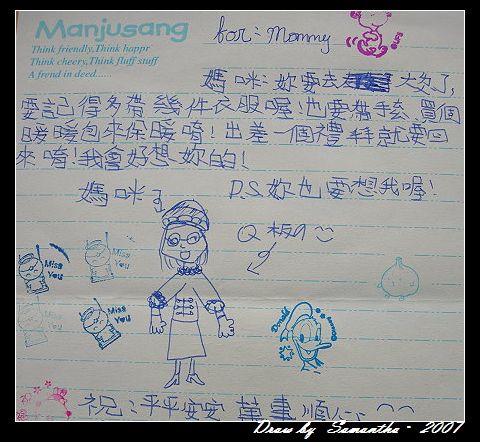 Manjusang
Think friendly,Think happr
Think cheery,Think fluff stuff
A frend in deed......
for: Mommy
媽咪:妳要去 大久了,
要記得多帶幾件衣服喔!也要借手套、買個
暖暖包來保暖唷!出差一個禮拜就要回
來唷!我會好想妳的!
媽咪 P.S.妳也要想我喔!
Q板の
Miss You
Miss You
Miss You
Miss You
Donald
祝:平平安安 萬事順心
Draw by Samantha - 2007